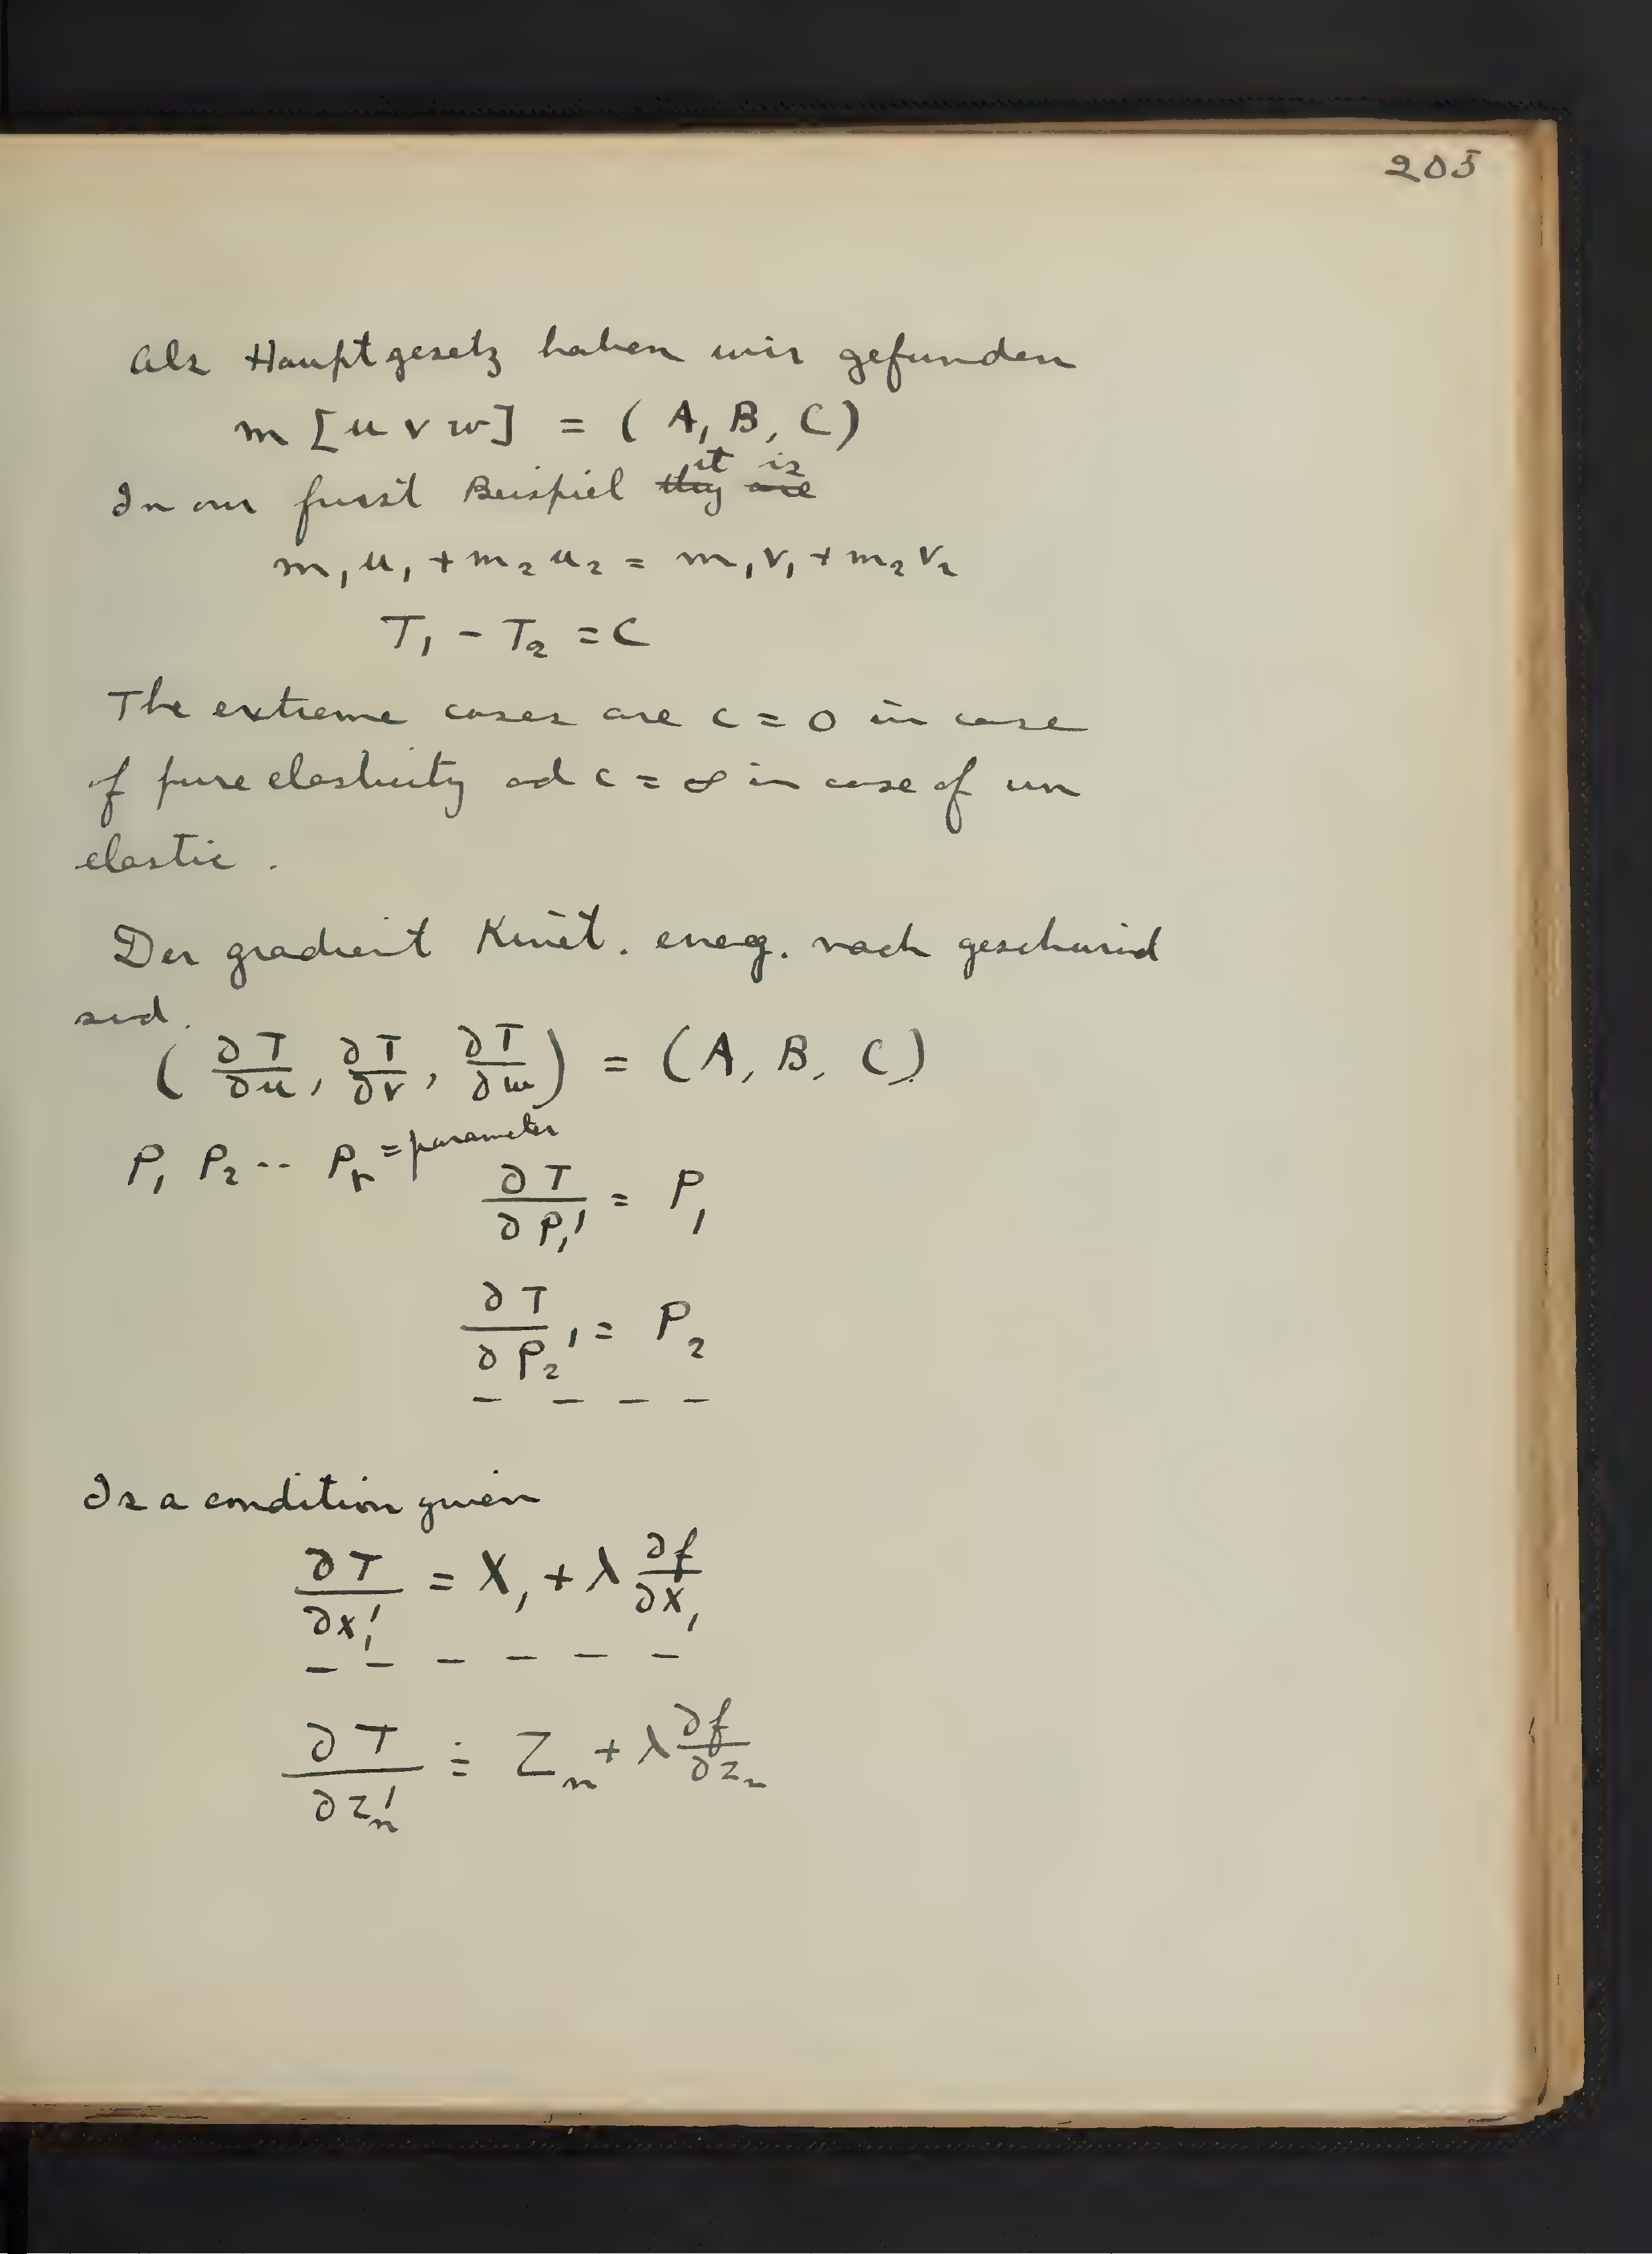 205
Als Hauptgesetz haben wir gefunden
m [u v w] = (A, B, C)
In our furst Beispiel ~~they are~~ it is
m₁u₁ + m₂u₂ = m₁v₁ + m₂v₂
T₁ - T₂ = C
The extreme cases are c = 0 in case
of pure elasticity ad c = ∞ in case of un
elastic.
Der gradient Kinet. energ. nach geschwind
sid.
(∂T/∂u, ∂T/∂v, ∂T/∂w) = (A, B, C)
P₁ P₂ -- Pᵣ = parameter
∂T/∂P₁' = P₁
∂T/∂P₂' = P₂
- - - -
Is a condition given
∂T/∂x₁' = X₁ + λ ∂f/∂x₁
- - - - - -
∂T/∂zₙ' = Zₙ + λ ∂f/∂zₙ